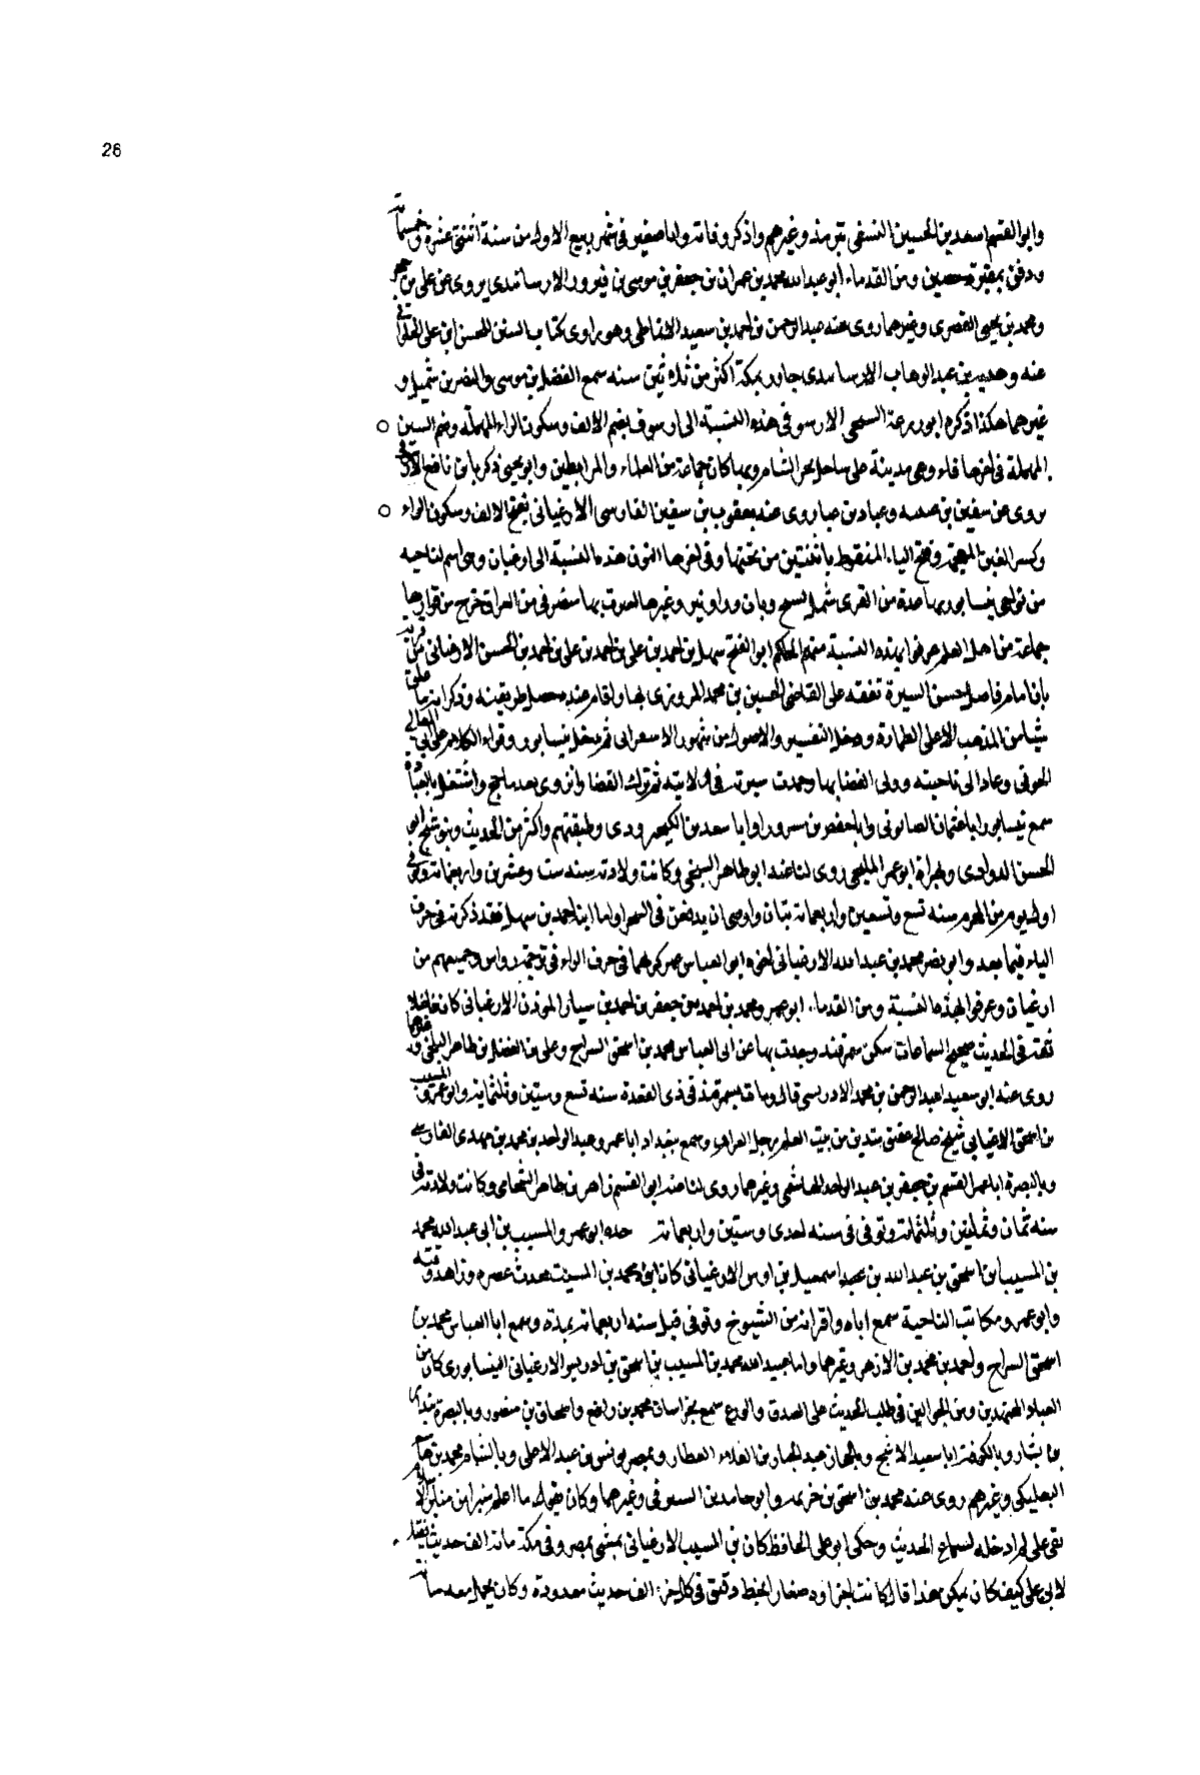 26
وابو القسم اسعد بن الحسين النسفى بترمذ وغيرهم واذكر وفاته وانا صغير فى شهر ربيع الاول من سنة اثنتى عشرة وخمسمائة
ودفن بمقبرة حصين ومن القدماء ابو عبد الله محمد بن عمران بن جعفر بن موسى بن فيروز الارسابندى يروى عن على بن حجر
ومحمد بن يحيى القصرى وغيرهما روى عنه عبد الرحمن بن احمد بن سعيد الانماطى وهو راوى كتاب السنن للحسن ابن على الحلوانى
عنه و بن عبد الوهاب الارسابندى جاور بمكة اكثر من ثلاثين سنه سمع الفضل بن موسى والنضر بن شميل و
غيرهما هكذا ذكره ابو زرعة السنجى الارسوفى هذه النسبة الى ارسوف بضم الالف وسكون الراء المهملة وضم السين
المهملة فى اخرها فاء وهى مدينة على ساحل بحر الشام وبها كان جماعة من العلماء والمرابطين وابو يحيى زكريا بن نافع الارسوفى
يروى عن سفين بن وعباد بن عباد روى عنه يعقوب بن سفين الفارسى الارغيانى بفتح الالف وسكون الراء
وكسر الغين المعجمة وفتح الياء المنقوطة باثنتين من تحتها وفى اخرها النون هذه النسبة الى ارغيان وهى اسم لناحيه
من نواحى نيسابور بها عدة من القرى مثل وبان وراونير وغيرها من العراق خرج من قراها
جماعة من اهل العلم عرفوا بهذه النسبة منهم الحاكم ابو الفتح سهل بن احمد بن على بن احمد بن على بن احمد بن الحسن الارغيانى من قرية
بان امام فاضل حسن السيرة تفقه على القاضى الحسين بن محمد المروزى بها واقام عنده حصل طريقته وذكر انه ما علق
شيا من المذهب الا على الطهارة وحصل التفسير والاصول من شهفور الاسفراينى ثم دخل نيسابور وقراء الكلام على ابى المعالى
الجوينى وعاد الى ناحيته وولى القضا بها وحمدت سيرته فى ولايته ثم ترك القضا وانزوى بعد ما حج واشتغل بالعبادة
سمع نيسابور ابا عثمان الصابونى وابا حفص بن مسرور وابا سعد بن الكنجرودى وطبقتهم واكثر من الحديث وببوشنج ابا
الحسن الداودى وبهراة ابو عمر المليحى روى لنا عنه ابو طاهر السنجى وكانت ولادته سنه ست وعشرين واربعمائة وتوفى
اول يوم من المحرم سنه تسع وتسعين واربعمائة ببان واوصى ان يدفن فى الصحرا واما ابنا احمد بن سهل فقد ذكرته فى حرف
الباء فيما بعد وابو نصر محمد بن عبد الله الارغيانى اخوه ابو العباس عمر ذكرهما فى حرف الراء فى ترجمة وجميعهم من
ارغيان وعرفوا بهذه النسبة ومن القدماء ابو عمرو محمد بن احمد بن جعفر بن احمد بن سيار المؤذن الارغيانى كان فاضلا
ثقة فى الحديث صحيح السماعات سكن سمرقند وحدث بها عن ابى العباس محمد بن اسحق السراج وعلى بن الفضل بن طاهر البلخى وغيرهما
روى عنه ابو سعيد عبد الرحمن بن محمد الادريسى قال ومات بسمرقند فى ذى القعدة سنه تسع وستين وثلثمائه وابو عمرو المسيب
بن اسحق الارغيانى شيخ صالح عفيف متدين من بيت العلم رحل العراق وسمع ببغداد ابا عمرو عبد الواحد بن محمد بن مهدى الفارسى
وبالبصرة ابا عمر القسم بن جعفر بن عبد الواحد الهاشمى وغيرهما روى لنا عنه ابو القسم زاهر بن طاهر الشحامى وكانت ولادته فى
سنه ثمان وثمانين وثلثمائة وتوفى فى سنه احدى وستين واربعمائة جده ابو عمرو المسيب بن ابى عبد الله محمد
بن المسيب بن اسحق بن عبد الله بن عبد اسمعيل بن اوس الارغيانى كان ابوه محمد بن المسيب محدث عصره وزاهد وقته
وابو عمرو مكانته الناحية سمع اباه واقرانه من الشيوخ وتوفى قبل سنه اربعمائة بمدة وسمع ابا العباس محمد بن
اسحق السراج واحمد بن محمد بن الازهر وغيرهما واما عبد الله محمد بن المسيب بن اسحق بن ادريس الارغيانى النيسابورى كان من
العباد المجتهدين ومن الجوالين فى طلب الحديث على الصدق والورع سمع بخراسان محمد بن رافع واسحاق بن منصور وبالبصرة بندار
بن بشار وبالكوفة ابا سعيد الاشج وبالحجاز عبد الجبار بن العلاء العطار وبمصر يونس بن عبد الاعلى وبالشام محمد بن هاشم
البعلبكى وغيرهم روى عنه محمد بن اسحق بن خزيمة وابو حامد بن الشرقى وغيرهما وكان يقول ما اعلم منبرا من منابر الاسلام
بقى على لم ادخله لسماع الحديث وحكى ابو على الحافظ كان بن المسيب الارغيانى يمشى بمصر وفى كمه مائة الف حديث فقيل
لابى على كيف كان يمكن هذا قال كانت اجزاؤه صغار بخط دقيق فى كل جزء الف حديث معدودة وكان يحمل معه مائة